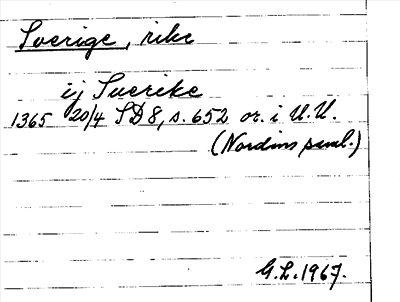 Sverige, rike
ij Suerike
1365 20/4 SD 8, s. 652 or. i U.U.
(Nordins saml.)
G.L. 1967.